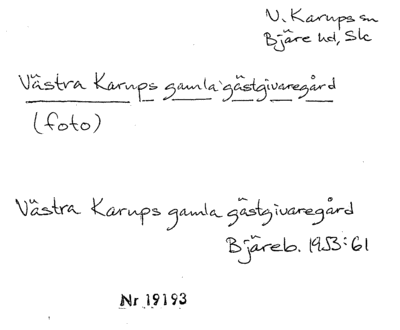 V. Karups sn
Bjäre hd, Sk
Västra Karups gamla gästgivaregård
(foto)
Västra Karups gamla gästgivaregård
Bjäreb. 1953:61
Nr 19193